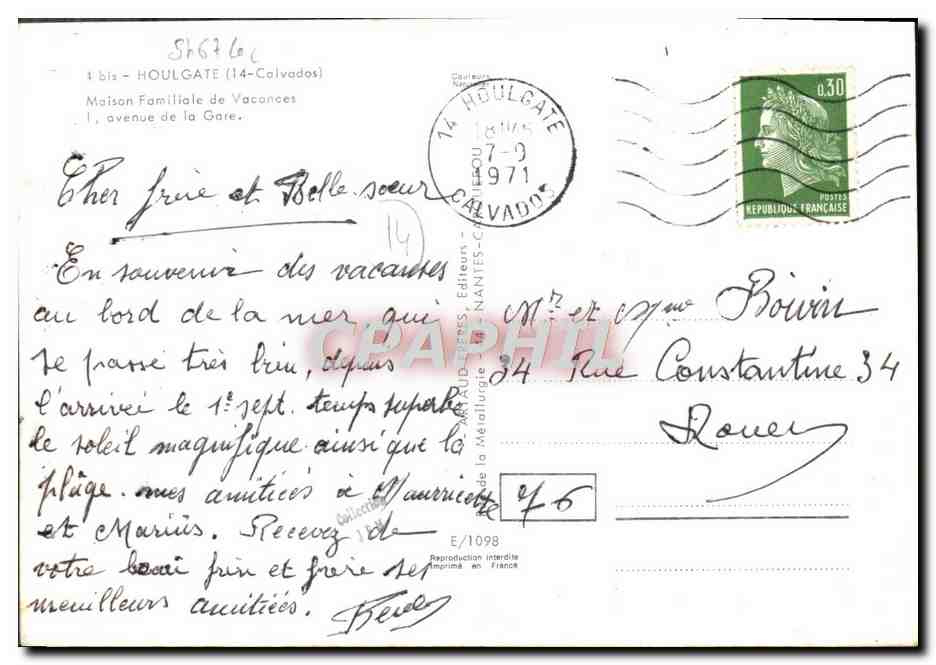 4 bis - HOULGATE (14-Calvados)
Maison Familiale de Vacances
1, avenue de la Gare.
Cher frère et Belle sœur
14
En souvenir des vacanses
au bord de la mer qui
se passe très bien, depuis
l'arrivée le 1e sept. temps superbe
le soleil magnifique ainsi que la
plâge. mes amitiées à Mauricette
et Mariüs. Recevez de
votre beau frère et frère ses
meuilleurs amitiées.
Couleurs
14 HOULGATE
7-9
1971
CALVADOS
ARTAUD FRÈRES, Editeurs -
de la Métallurgie - 44 - NANTES-CARQUEFOU
0,30
POSTES
REPUBLIQUE FRANÇAISE
Mr et Mme Boivin
34 Rue Constantine 34
Rouen
76
CPAPHIL
Collection
E/1098
Reproduction interdite
Imprimé en France